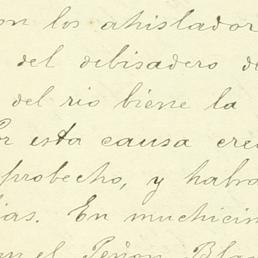 on los ahislador
del debisadero d
del rio biene la
or esta causa cre
probecho, y habra
ias. En muchicim
an el Peñon Bla